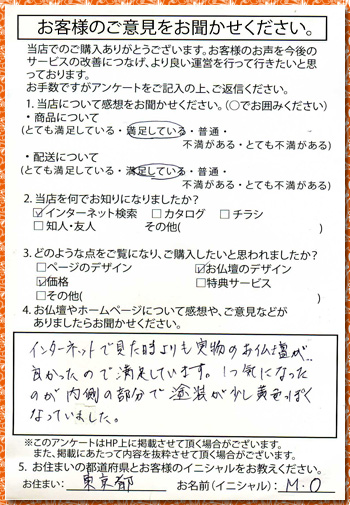 お客様のご意見をお聞かせください。
当店でのご購入ありがとうございます。お客様のお声を今後の
サービスの改善につなげ、より良い運営を行って行きたいと思
っております。
お手数ですがアンケートをご記入の上、ご返信ください。
1. 当店について感想をお聞かせください。（○でお囲みください）
・商品について
（とても満足している・満足している・普通・
不満がある・とても不満がある）
・配送について
（とても満足している・満足している・普通・
不満がある・とても不満がある）
2. 当店を何でお知りになりましたか？
☑インターネット検索 □カタログ □チラシ
□知人・友人 その他( )
3. どのような点をご覧になり、ご購入したいと思われましたか？
□ページのデザイン ☑お仏壇のデザイン
☑価格 □特典サービス
□その他( )
4. お仏壇やホームページについて感想や、ご意見などが
ありましたらお聞かせください。
インターネットで見た時よりも実物のお仏壇が
良かったので満足しています。1つ気になった
のが内側の部分で塗装が少し黄色っぽく
なっていました。
※このアンケートはHP上に掲載させて頂く場合がございます。
また、掲載にあたって内容を抜粋させて頂く場合がございます。
5. お住まいの都道府県とお客様のイニシャルをお教えください。
お住まい: 東京都 お名前（イニシャル）: M.O